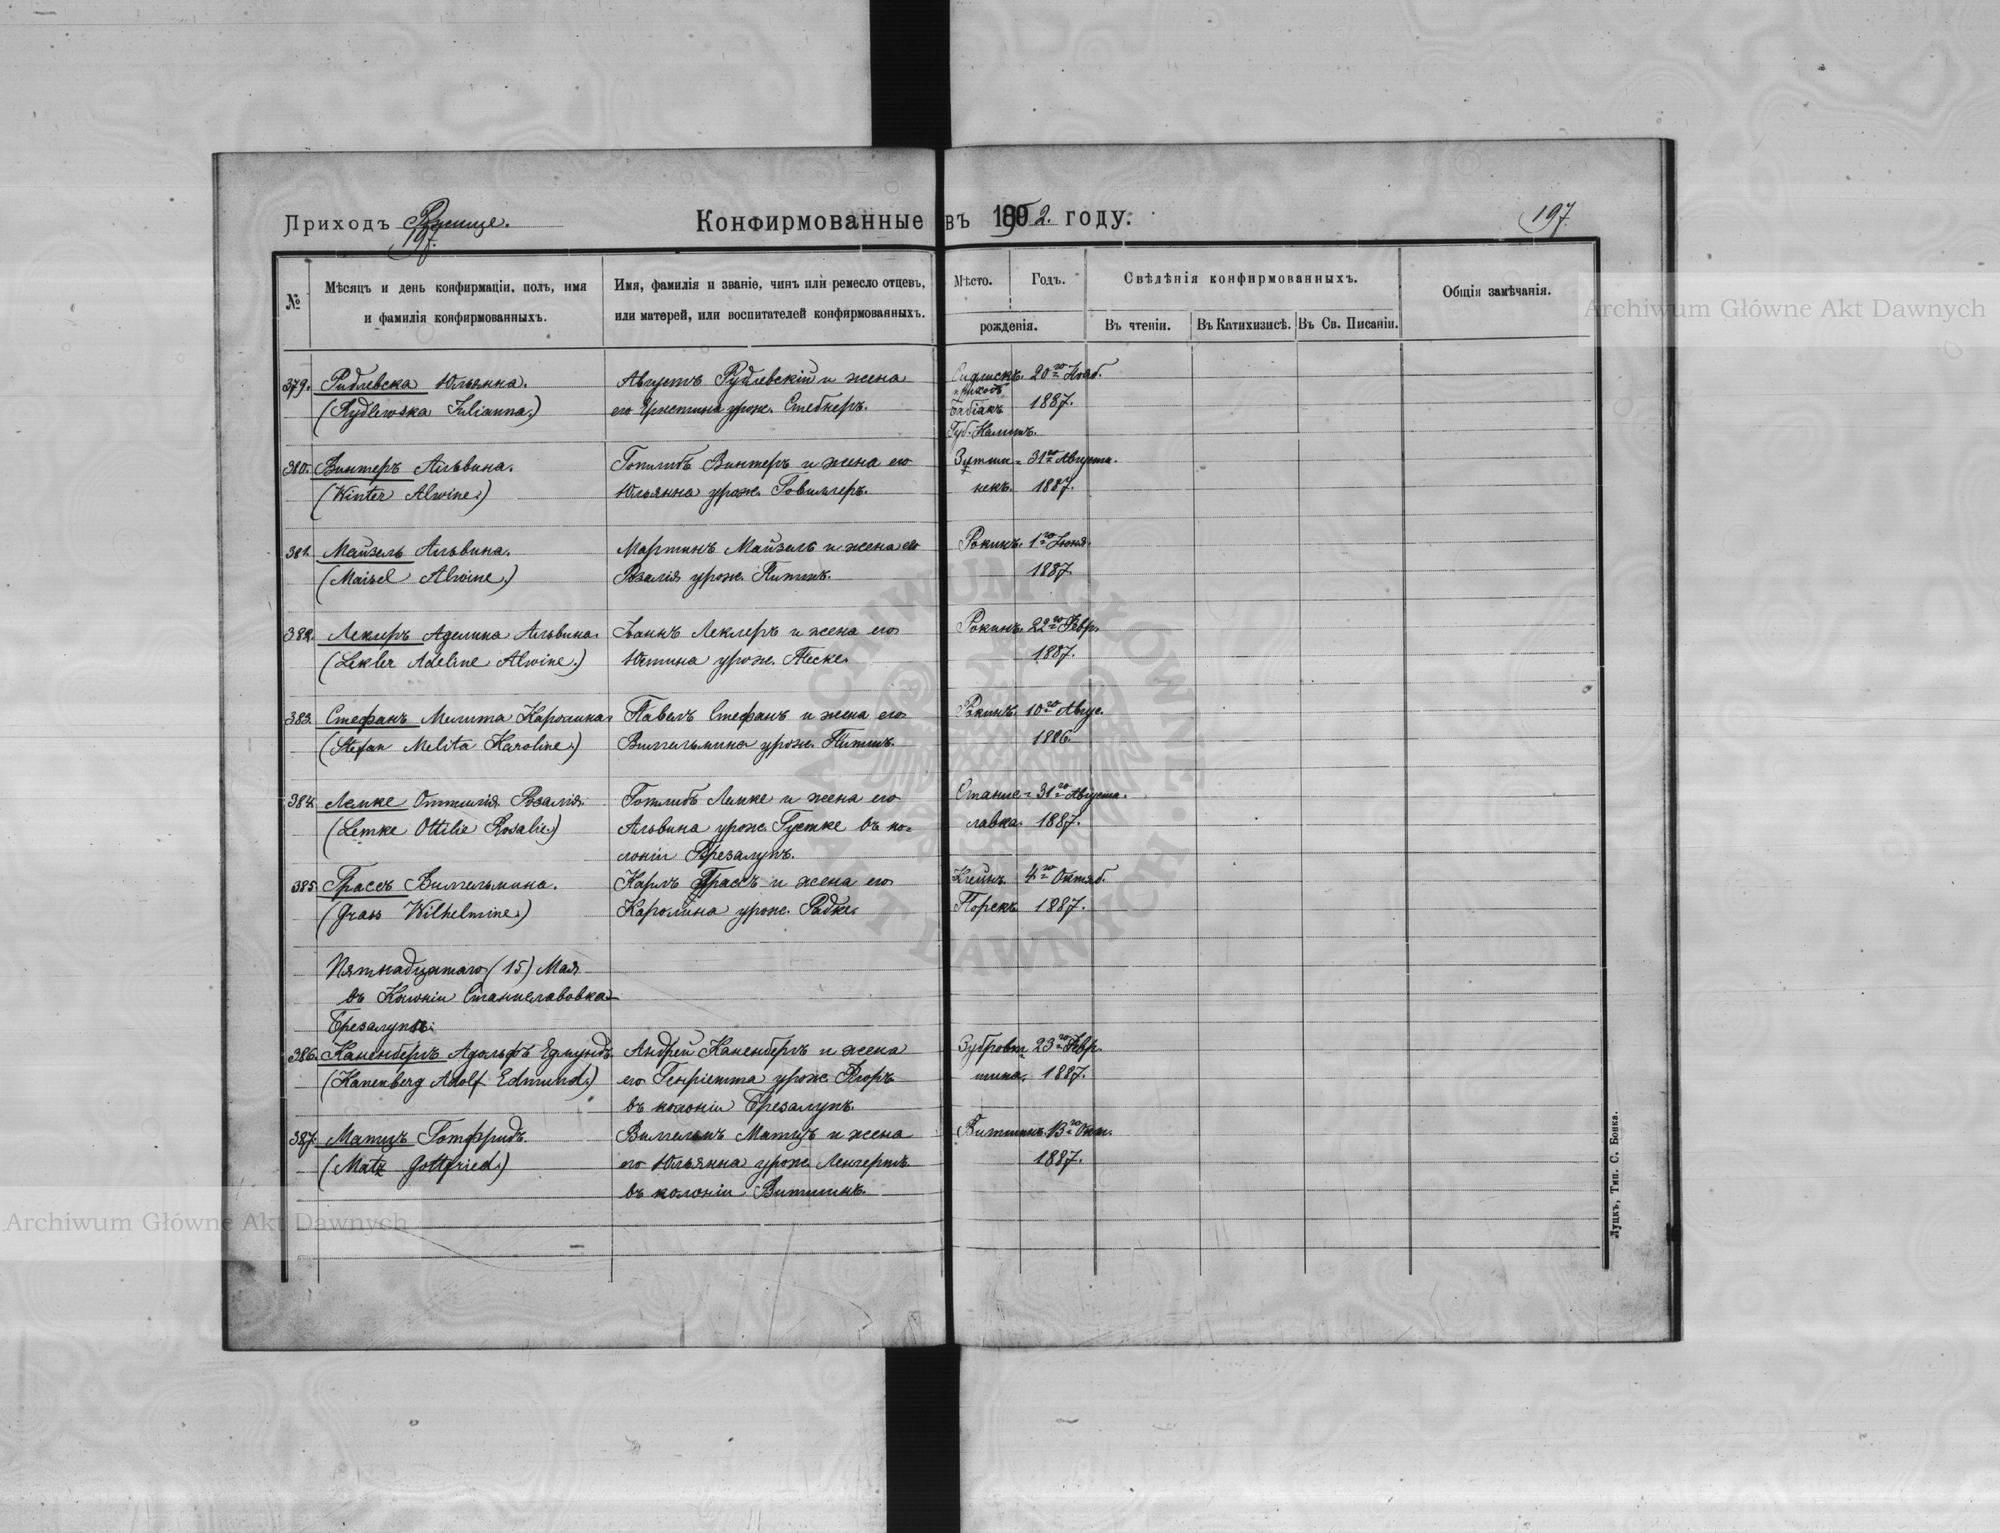 Приходъ Рожище.
197.
Конфирмованные въ 1902. году.
197.
№
Мѣсяцъ и день конфирмаціи, полъ, имя
и фамилія конфирмованныхъ.
Имя, фамилія и званіе, чинъ или ремесло отцевъ,
или матерей, или воспитателей конфирмованныхъ.
Мѣсто.
Годъ.
рожденія.
Свѣдѣнія конфирмованныхъ.
Въ чтеніи.
Въ Катихизисѣ.
Въ Св. Писаніи.
Общія замѣчанія.
379. Ридлевска Юльянна.
(Rydlewska Julianna.)
Августъ Рудлевскій и жена
его Эрнстина урож. Стебнеръ.
приходъ
Бабіакъ
Губ. Калишъ.
20го Нояб.
1887.
380. Винтеръ Альвина.
(Winter Alwine.)
Готлибъ Винтеръ и жена его
Юльянна урож.
некъ.
31го Августа.
1887.
381. Майзель Альвина.
(Maisel Alwine.)
Мартинъ Майзель и жена его
Розалія урож. Питтъ.
Рокинъ.
1го Іюня.
1887.
382. Леклеръ Аделина Альвина.
(Lekler Adeline Alwine.)
Іоаннъ Леклеръ и жена его
Юстина урож. Теске.
Рокинъ.
22го Февр.
1887.
383. Стефанъ Мелита Каролина.
(Stefan Melita Karoline.)
Павелъ Стефанъ и жена его
Вильгельмина урож.
Рокинъ.
10го Авгус.
1886.
384. Лемке Оттилія Розалія.
(Lemke Ottilie Rosalie.)
Готлибъ Лемке и жена его
Альвина урож. Густке въ ко-
лоніи Брезалупъ.
Станис-
лавка.
31го Августа.
1887.
385. Грассъ Вильгельмина.
(Grass Wilhelmine.)
Карлъ Грассъ и жена его
Каролина урож. Радке.
Клейнъ
Порскъ
4го Октяб.
1887.
Пятнадцатаго (15) Мая
въ Колоніи Станиславовка-
Брезалупъ:
386. Каненбергъ Адольфъ Едмундъ.
(Kanenberg Adolf Edmund.)
Андрей Каненбергъ и жена
его Генріетта урож. Ягоръ
въ колоніи Брезалупъ.
Зубровт
шина.
23го Февр.
1887.
387. Матцъ Готфридъ.
(Matz Gottfried.)
Вильгельмъ Матцъ и жена
его Юльянна урож. Ленгертъ
въ колоніи Витшинъ.
Витшинъ.
13го Окт.
1887.
Луцкъ, Тип. С. Бонка.
Archiwum Główne Akt Dawnych
Archiwum Główne Akt Dawnych
ARCHIWUM GŁÓWNE AKT DAWNYCH